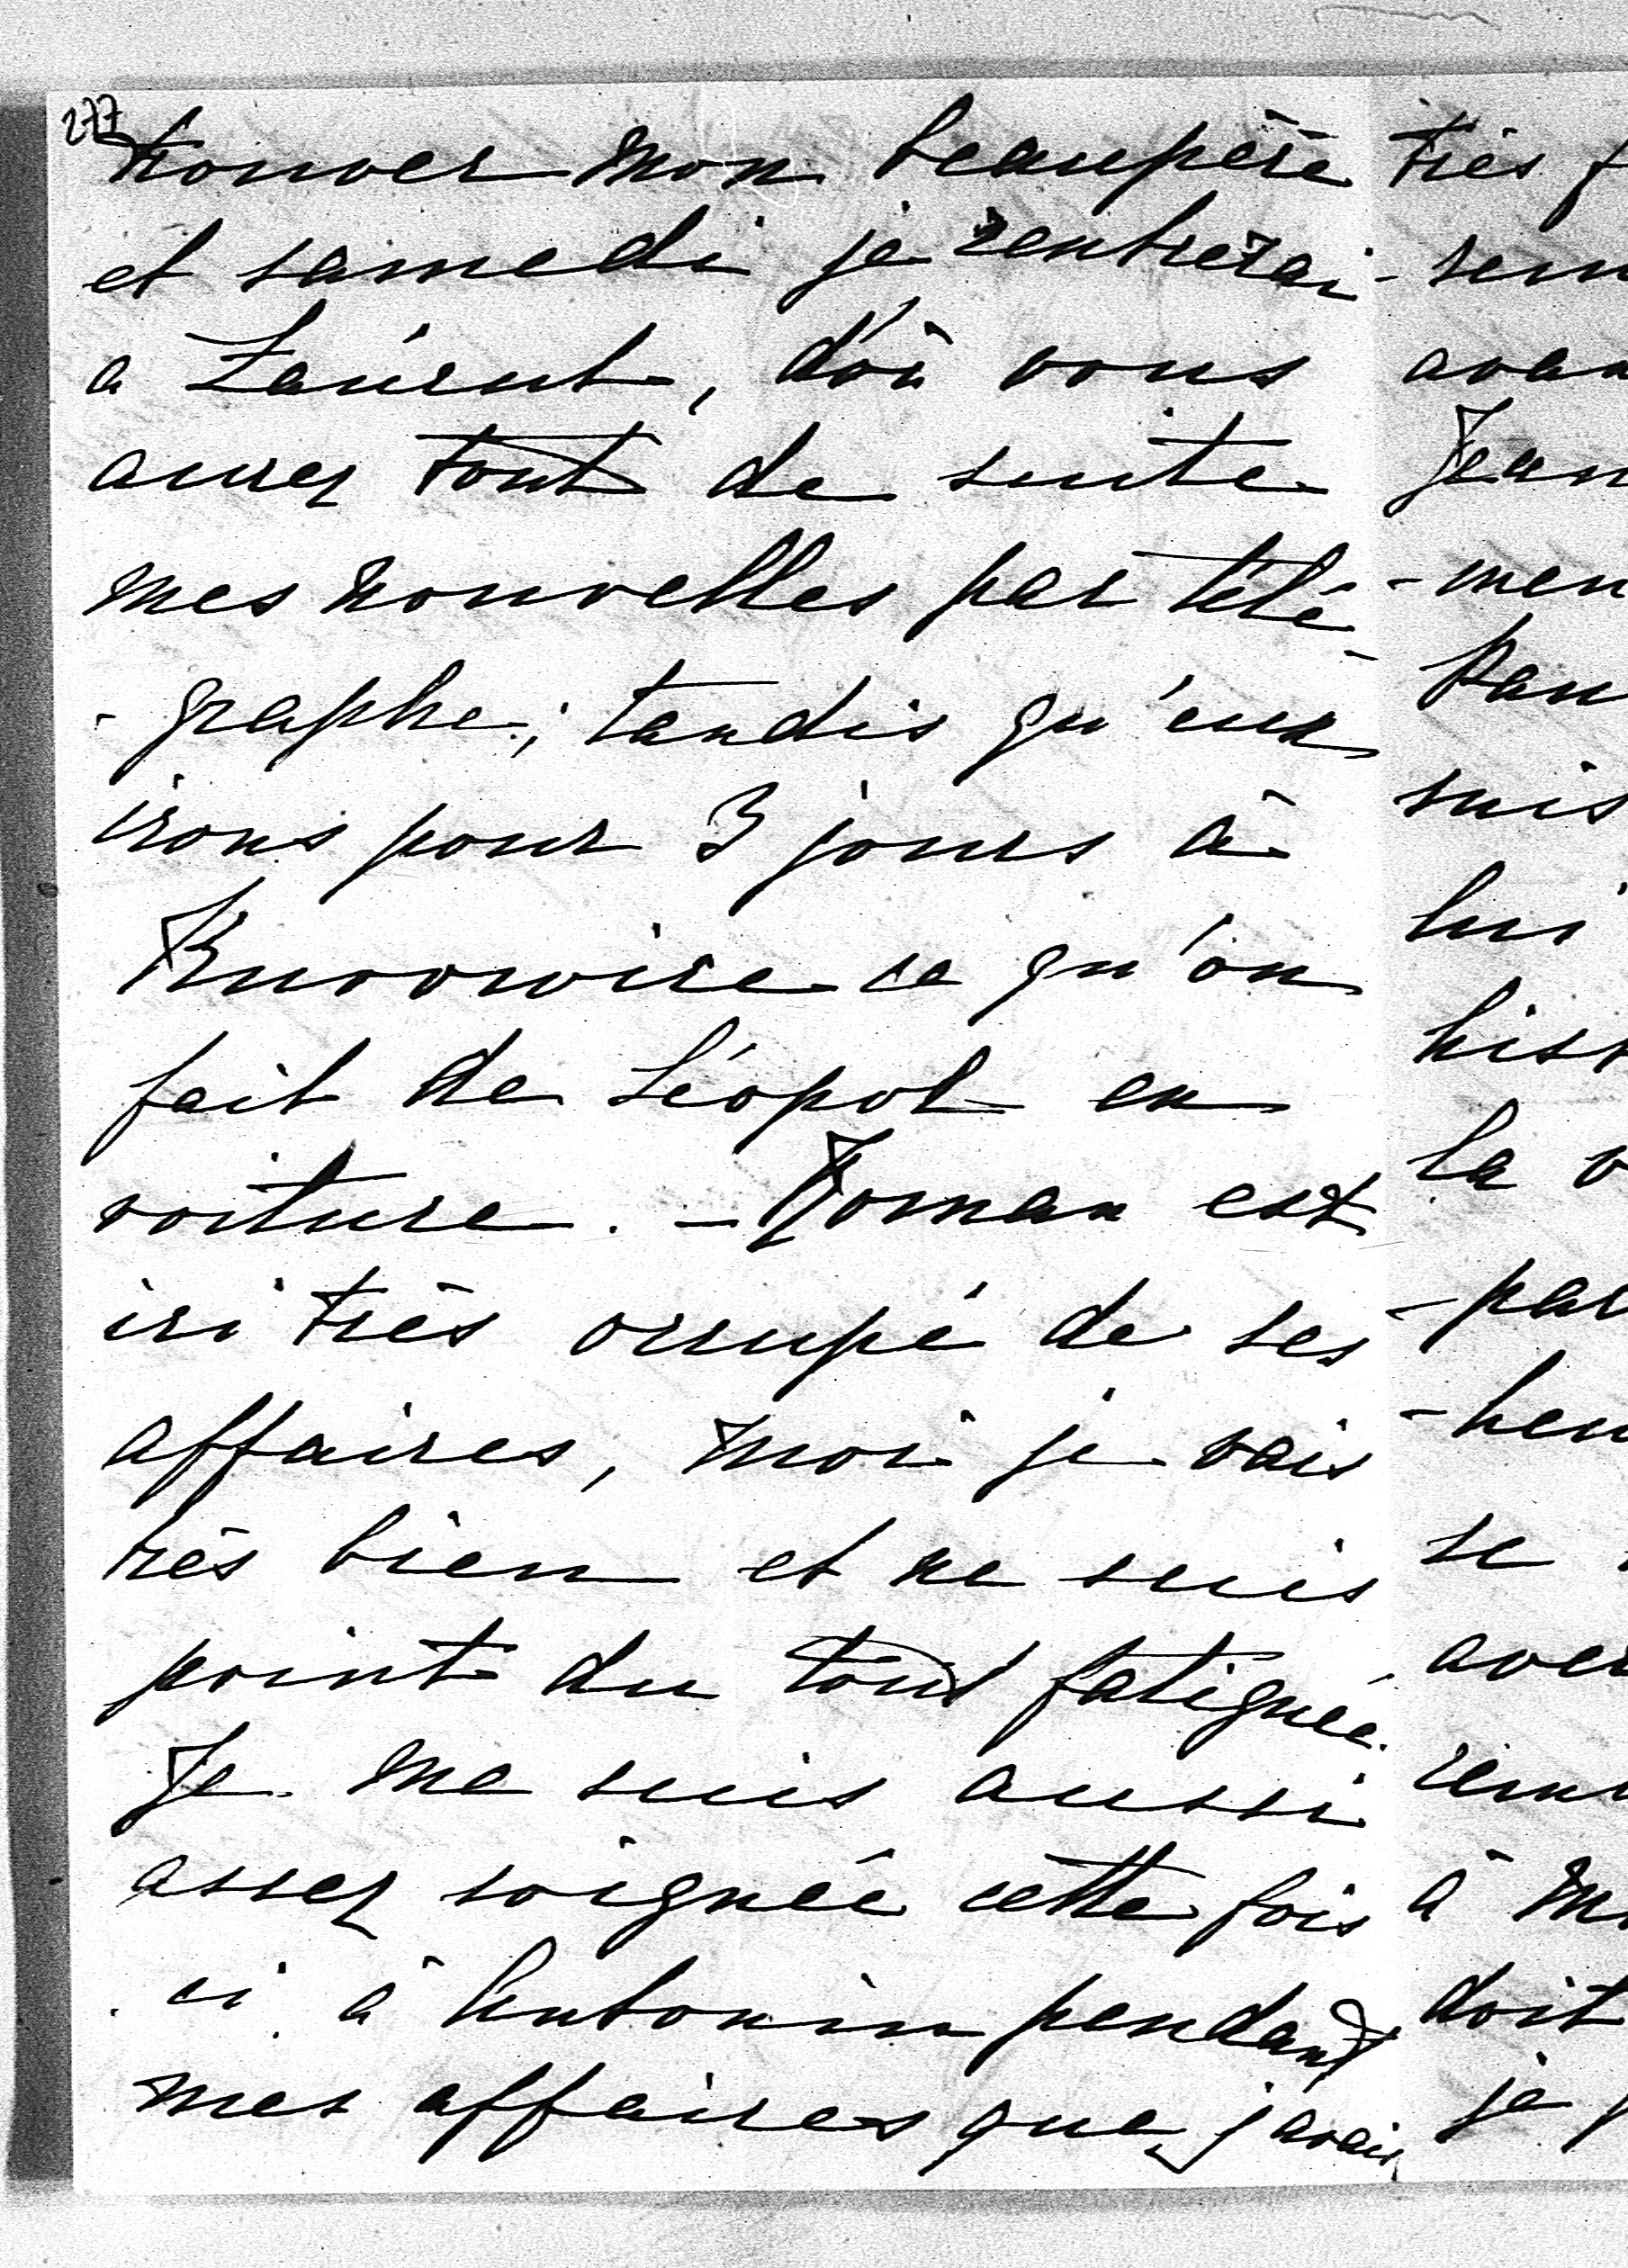 277
trouver mon beaupère
et samedi je rentrerai
a Łańcut, d'où vous
aurez tout de suite
mes nouvelles par télé-
-graphe; tandis qu'eux
irons pour 3 jours à
ce qu'on
fait de Léopol en
voiture. - Roman est
ici très occupé de ses
affaires, moi je vais
très bien et ne suis
point du tout fatiguée.
Je me suis aussi
assez soignée cette fois
ci à Antonin pendant
mes affaires que j'avais
très
avan
Jean
-men
suis
lui
la
-par
se
avec
à
doit
je